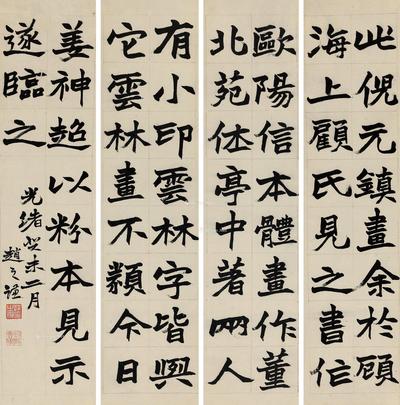 此倪元鎮畫余於顧
海上顧氏見之書仿
歐陽信本體畫作董
北苑体亭中著兩人
有小印雲林字皆與
它雲林畫不類今日
姜神超以粉本見示
遂臨之
光緒癸未二月
趙之謙